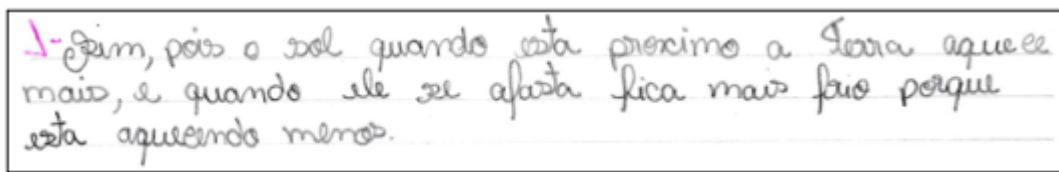 1- Sim, pois o sol quando esta proximo a Terra aquece
mais, e quando ele se afasta fica mais frio porque
esta aquecendo menos.